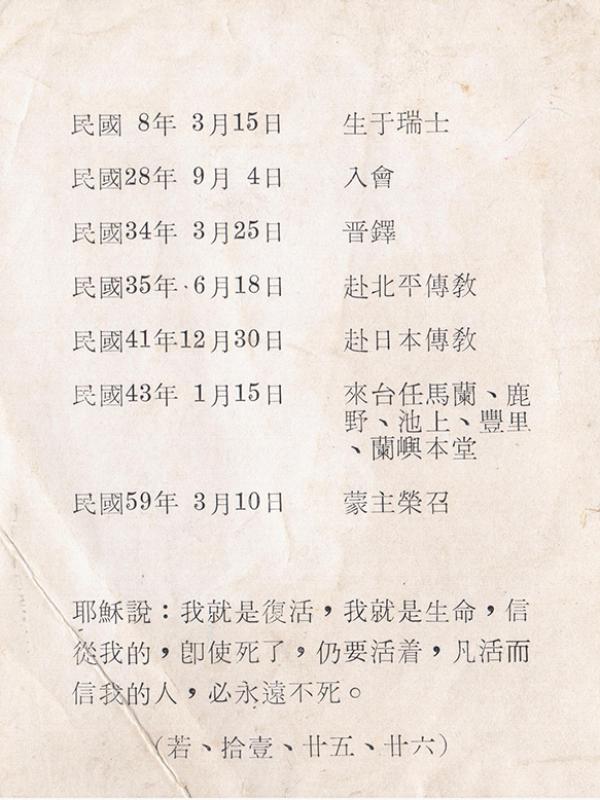 民國 8年 3月15日 生于瑞士
民國28年 9月 4日 入會
民國34年 3月25日 晋鐸
民國35年 6月18日 赴北平傳敎
民國41年12月30日 赴日本傳敎
民國43年 1月15日 來台任馬蘭、鹿
野、池上、豐里
、蘭嶼本堂
民國59年 3月10日 蒙主榮召
耶穌說：我就是復活，我就是生命，信
從我的，卽使死了，仍要活着，凡活而
信我的人，必永遠不死。
（若、拾壹、廿五、廿六）